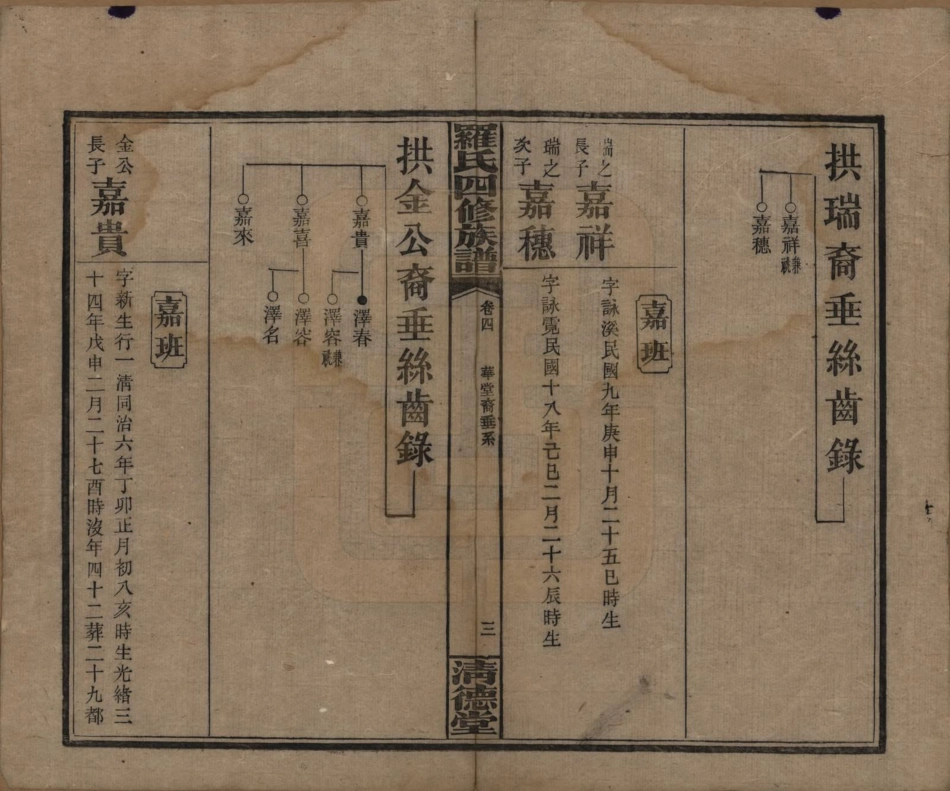 拱瑞裔垂絲齒錄
嘉祥兼祧
嘉穗
嘉班
瑞之長子
嘉祥
字詠溪民國九年庚申十月二十五巳時生
瑞之次子
嘉穗
字詠霓民國十八年己巳二月二十六辰時生
羅氏四修族譜
卷四
華堂裔垂系
三
清德堂
拱金公裔垂絲齒錄
嘉貴
澤春
澤容兼祧
嘉喜
澤容
澤名
嘉來
嘉班
金公長子
嘉貴
字新生行一清同治六年丁卯正月初八亥時生光緒三
十四年戊申二月二十七酉時沒年四十二葬二十九都